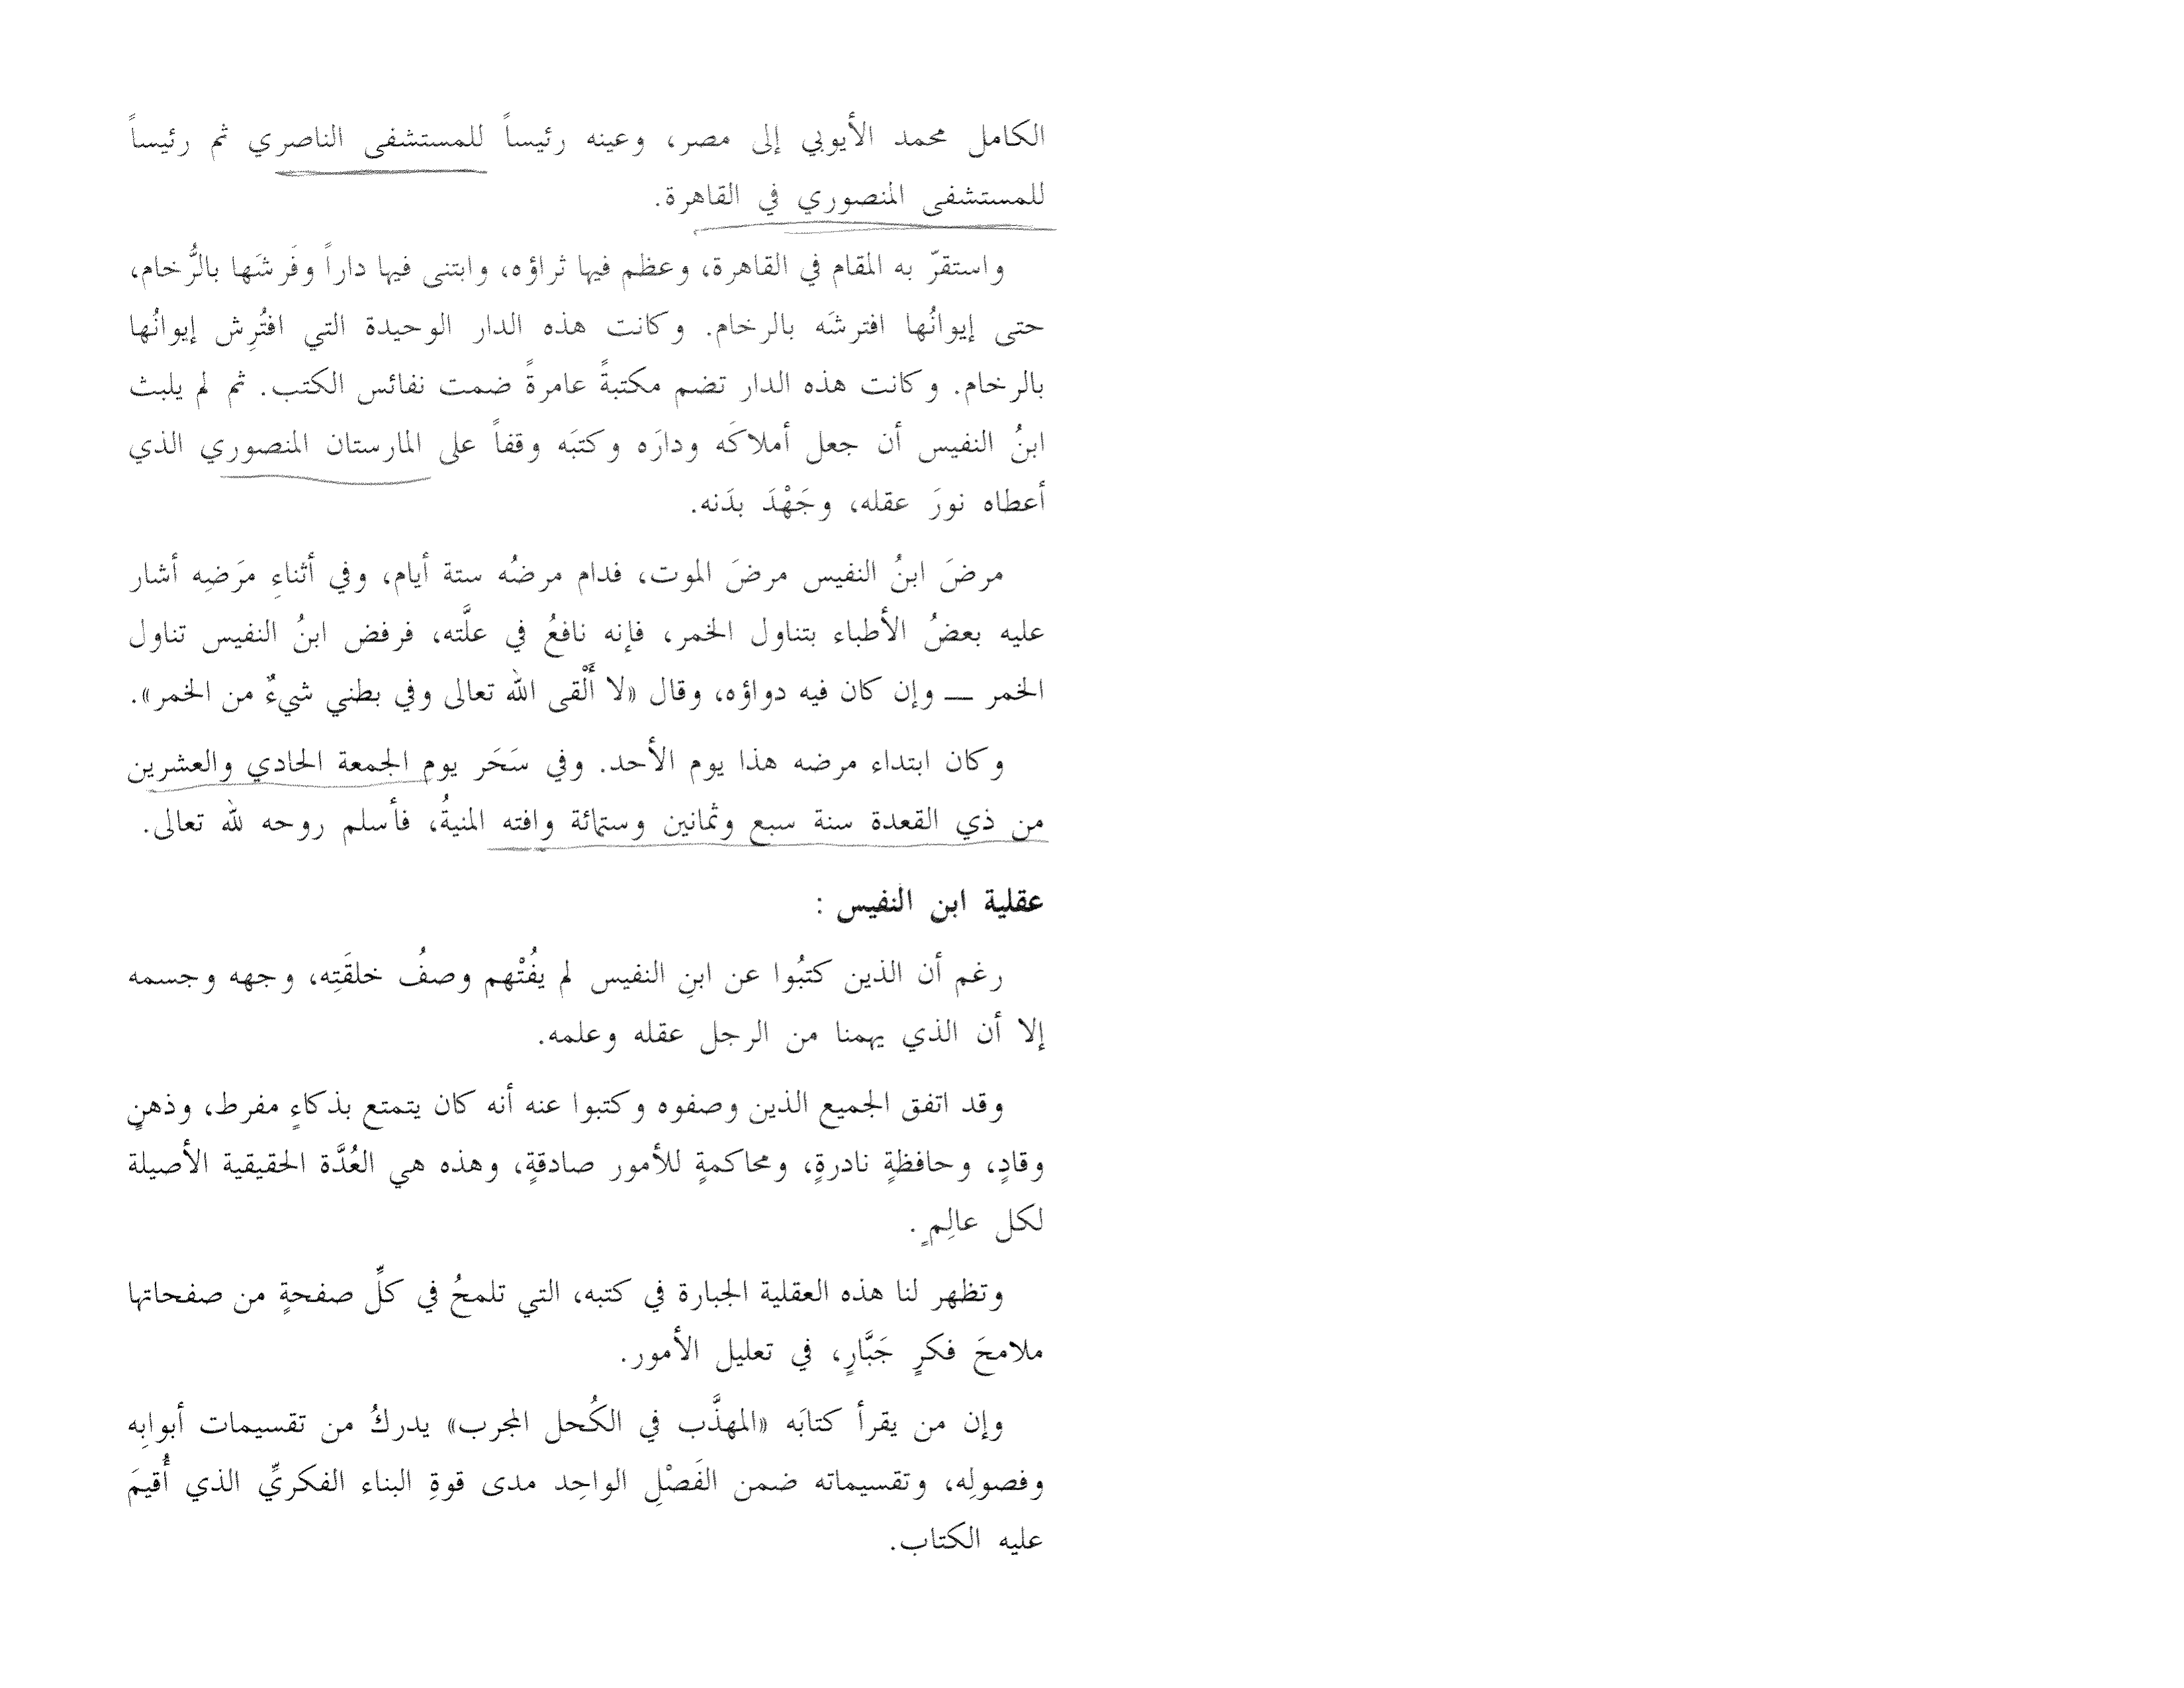 الكامل محمد الأيوبي إلى مصر، وعينه رئيساً للمستشفى الناصري ثم رئيساً
للمستشفى المنصوري في القاهرة.
واستقرّ به المقام في القاهرة، وعظم فيها ثراؤه، وابتنى فيها داراً وفَرشَها بالرُّخام،
حتى إيوانُها افترشَه بالرخام. وكانت هذه الدار الوحيدة التي افتُرِش إيوانُها
بالرخام. وكانت هذه الدار تضم مكتبةً عامرةً ضمت نفائس الكتب. ثم لم يلبث
ابنُ النفيس أن جعل أملاكَه ودارَه وكتبَه وقفاً على المارستان المنصوري الذي
أعطاه نورَ عقله، وجَهْدَ بدَنه.
مرضَ ابنُ النفيس مرضَ الموت، فدام مرضُه ستة أيام، وفي أثناءِ مرَضِه أشار
عليه بعضُ الأطباء بتناول الخمر، فإنه نافعُ في علَّته، فرفض ابنُ النفيس تناول
الخمر — وإن كان فيه دواؤه، وقال «لا أَلْقى الله تعالى وفي بطني شيءٌ من الخمر».
وكان ابتداء مرضه هذا يوم الأحد. وفي سَحَر يوم الجمعة الحادي والعشرين
من ذي القعدة سنة سبع وثمانين وستمائة وافته المنيةُ، فأسلم روحه لله تعالى.
عقلية ابن النفيس :
رغم أن الذين كتبُوا عن ابنِ النفيس لم يفُتْهم وصفُ خلقَتِه، وجهه وجسمه
إلا أن الذي يهمنا من الرجل عقله وعلمه.
وقد اتفق الجميع الذين وصفوه وكتبوا عنه أنه كان يتمتع بذكاءٍ مفرط، وذهنٍ
وقادٍ، وحافظةٍ نادرةٍ، ومحاكمةٍ للأمور صادقةٍ، وهذه هي العُدَّة الحقيقية الأصيلة
لكل عالِمٍ.
وتظهر لنا هذه العقلية الجبارة في كتبه، التي تلمحُ في كلِّ صفحةٍ من صفحاتها
ملامحَ فكرٍ جَبَّارٍ، في تعليل الأمور.
وإن من يقرأ كتابَه «المهذَّب في الكُحل المجرب» يدركُ من تقسيمات أبوابِه
وفصولِه، وتقسيماته ضمن الفَصْلِ الواحِد مدى قوةِ البناء الفكريِّ الذي أُقيمَ
عليه الكتاب.